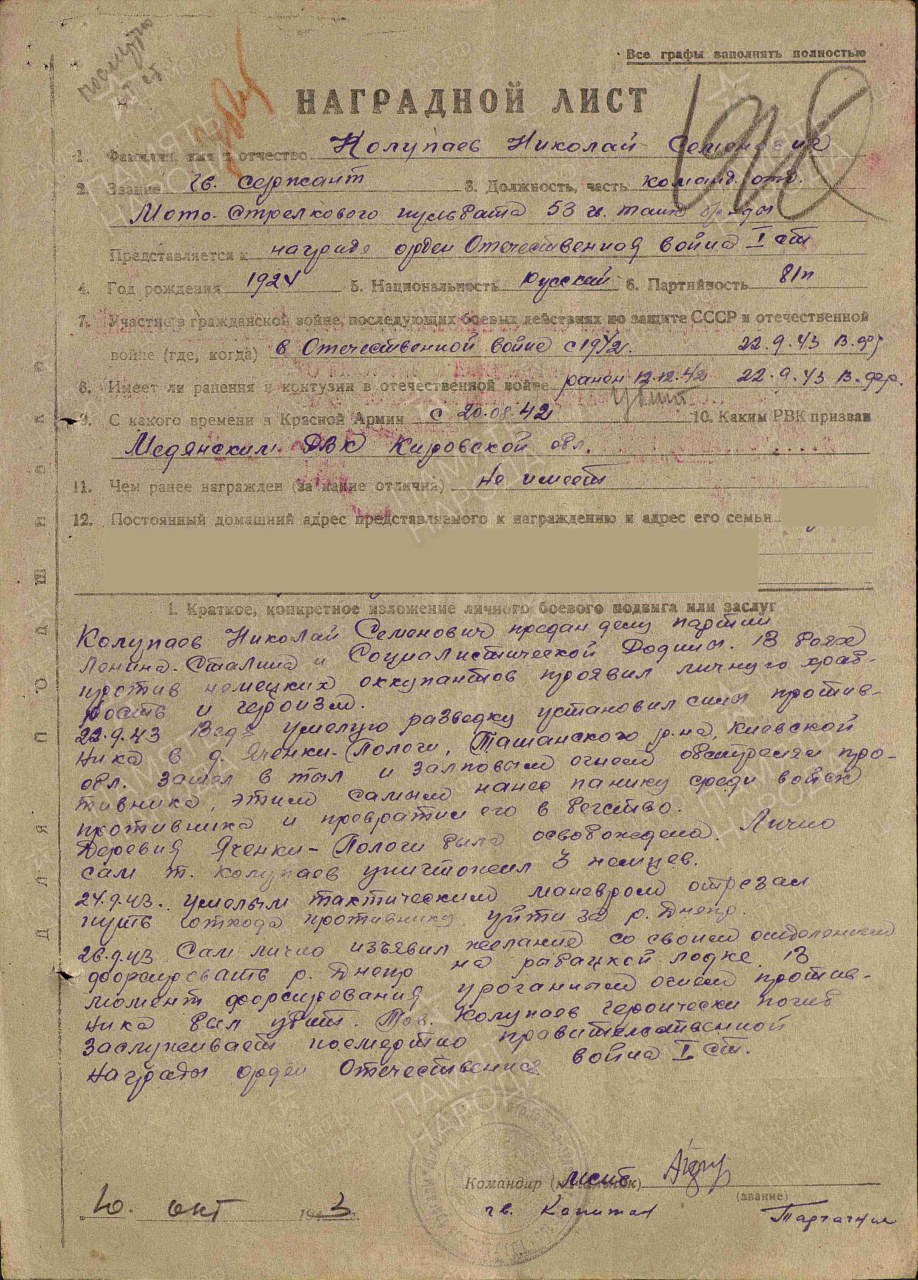 посмертно
Все графы заполнять полностью
НАГРАДНОЙ ЛИСТ
1. Фамилия, имя и отчество Колупаев Николай Семенович
2. Звание гв. сержант 3. Должность, часть команд. отд.
Мото-стрелкового пульбата 53 гв. танк бригады
Представляется к награде орден Отечественная война I ст
4. Год рождения 1924 5. Национальность Русский 6. Партийность б/п
7. Участие в гражданской войне, последующих боевых действиях по защите СССР и отечественной
войне (где, когда) в Отечественной войне с 1942г. 22.9.43 В.фр
8. Имеет ли ранения и контузии в отечественной войне ранен 12.12.42 22.9.43 В.фр.
убит
9. С какого времени в Красной Армии с 20.08.42 10. Каким РВК призван
Медянским РВК Кировской обл.
11. Чем ранее награжден (за какие отличия) Не имеет
12. Постоянный домашний адрес представляемого к награждению и адрес его семьи
I. Краткое, конкретное изложение личного боевого подвига или заслуг
Колупаев Николай Семенович предан делу партии
Ленина-Сталина и Социалистической Родины. В боях
против немецких оккупантов проявил личную храб-
рость и героизм.
22.9.43 Ведя умелую разведку установил силы против-
ника в д. Яченки-Пологи, Ташанского р-на, Киевской
обл. Зашел в тыл и залповым огнем обстрелял про-
тивника, этим самым нанес панику среди войск
противника и превратил его в бегство.
Деревня Яченки-Пологи была освобождена. Лично
сам т. Колупаев уничтожил 3 немцев.
24.9.43. умелым тактическим маневром отрезал
путь отхода противнику уйти за р. Днепр.
26.9.43 Сам лично изъявил желание со своим отделением
форсировать р. Днепр на рыбацкой лодке. В
момент форсирования ураганным огнем против-
ника был убит. Тов. Колупаев героически погиб
Заслуживает посмертно правительственной
Награды орден Отечественная война I ст.
Командир (начальник)
(звание)
10. окт 1943
гв. Капитан
ДЛЯ ПОДШИВКИ
ПАМЯТЬ НАРОДА